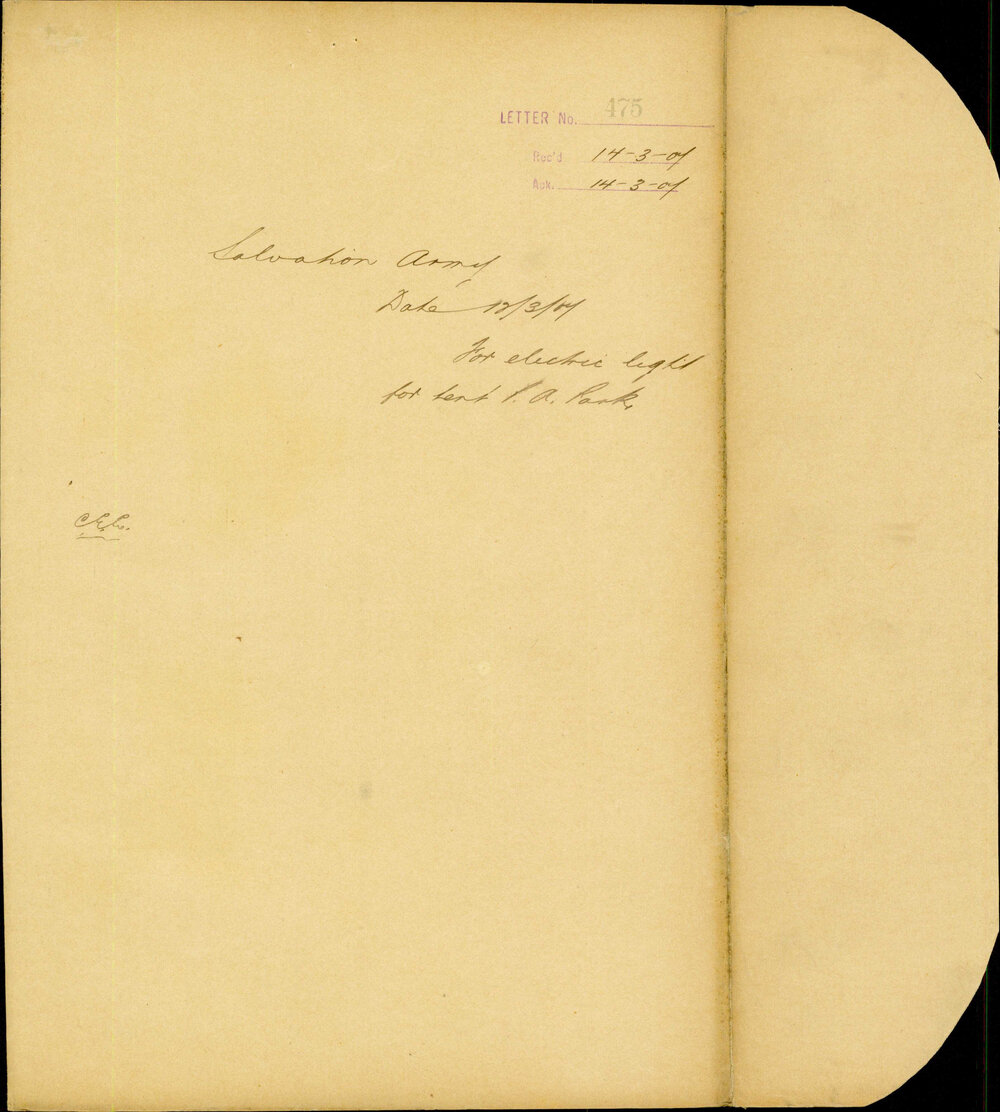 LETTER No. 475
Rec'd 14-3-07
Ack. 14-3-07
Salvation Army
Date 12/3/07
For electric light
for tent P. A. Park,